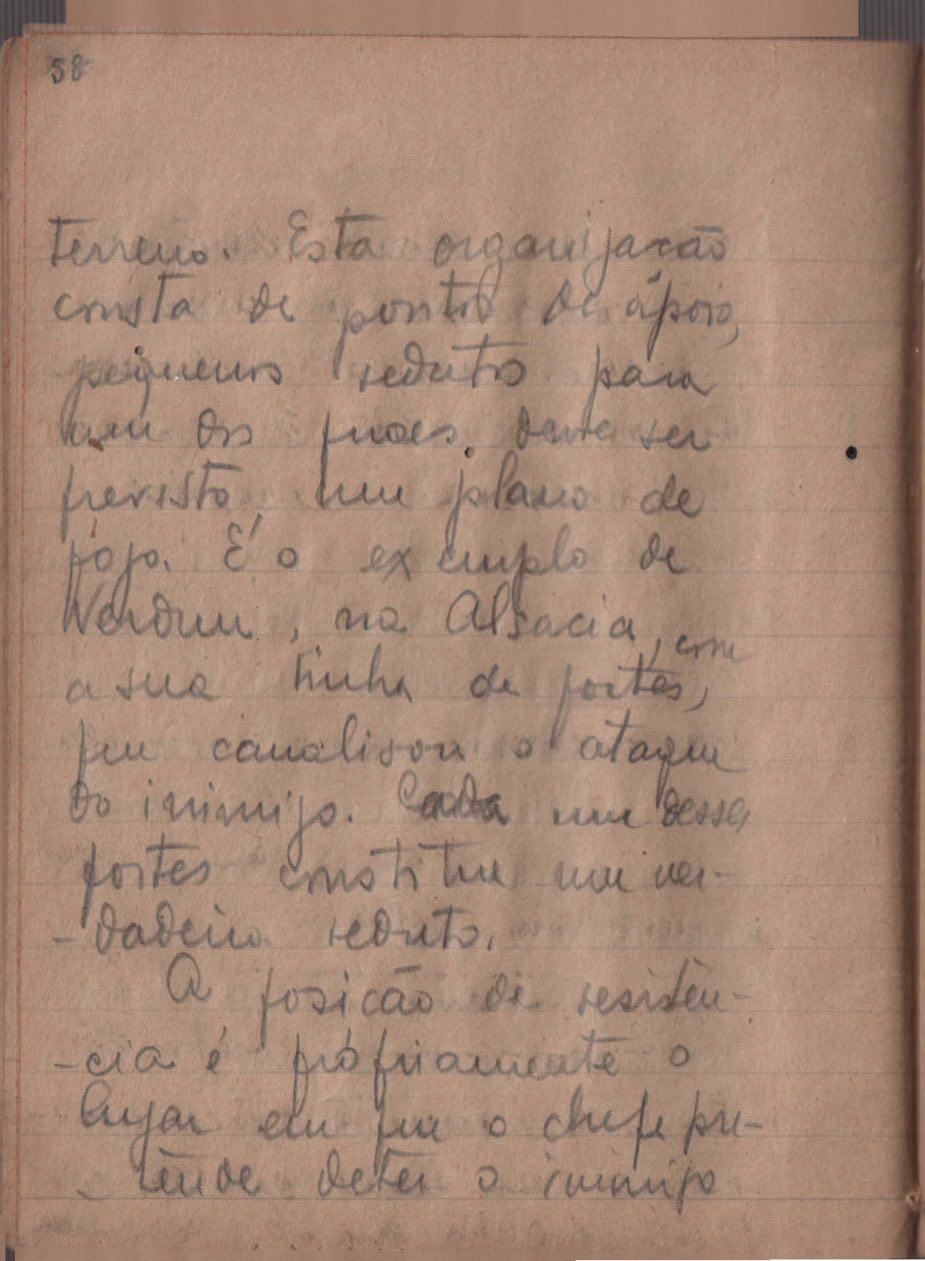 58
terreno. Esta organização
consta de pontos de ápoio,
pequenos redutos para
um dos quaes deve ser
previsto um plano de
fogo. É o exemplo de
Verdun, na Alsacia, com
a sua linha de fortes,
que canalisou o ataque
do inimigo. Cada um desses
fortes constitue um ver-
-dadeiro reduto.
A posição de resistên-
-cia é própriamente o
lugar em que o chefe pre-
-tende deter o inimigo